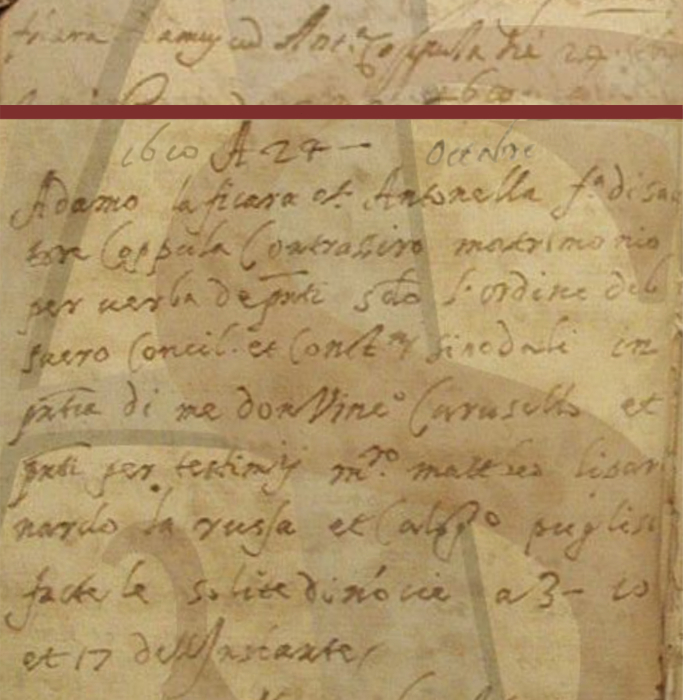 ficara Damo cu Ant.a Coppula die 24
1610
1610 A 24 — Octobre
Adamo la ficara et Antonella f.a di sal
tore Coppula Contrassiro matrimonio
per verba de pnti s.do l'ordine del
sacro Concil. et Const.ni sinodali in
pntia di me don Vinc.o Carusello et
pnti per testimij m.ro mattheo
nardo la russa et puglisi
facte le solite dinócie a 3 – 10
et 17 dell'Instante